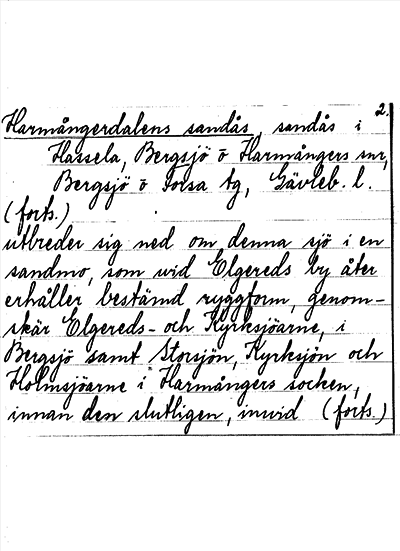 2.
Harmångerdalens sandås, sandås i
Hassela, Bergsjö o Harmångers snr,
Bergsjö o Forsa tg, Gävleb. l.
(forts.)
utbreder sig ned om denna sjö i en
sandmo, som vid Elgereds by åter
erhåller bestämd ryggform, genom-
skär Elgereds- och Kyrksjöarne, i
Bergsjö samt Storsjön, Kyrksjön och
Holmsjöarne i Harmångers socken,
innan den slutligen, invid (forts.)